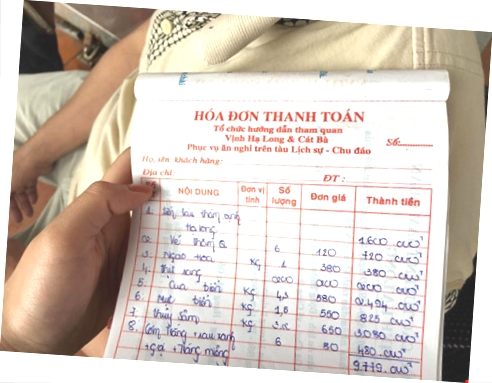 HÓA ĐƠN THANH TOÁN
Tổ chức hướng dẫn tham quan
Vịnh Hạ Long & Cát Bà
Phục vụ ăn nghỉ trên tàu Lịch sự - Chu đáo
Số:
Họ, tên khách hàng:
Địa chỉ: ĐT:
NỘI DUNG Đơn vị tính Số lượng Đơn giá Thành tiền
1. tiền tàu thăm vịnh
Hạ Long 1.600.000đ
2. Vé thăm 6 120 720.000đ
3. Ngao Hoa kg 1 380 380.000đ
4.
5. Cua biển kg 4,3 580 2.494.000đ
6. Mực biển kg 1,5 550 825.000đ
7. kg 650 3.080.000đ
8. Cơm trắng + rau xanh 6 80 480.000đ
9.779.000đ